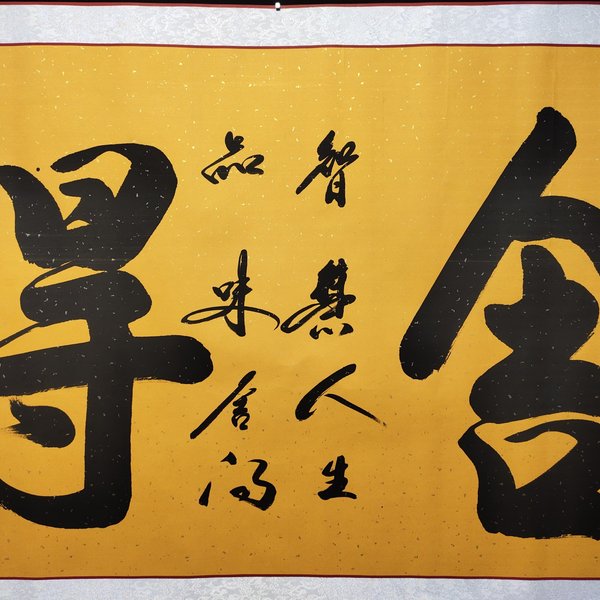 舍
智慧人生
品味舍得
得